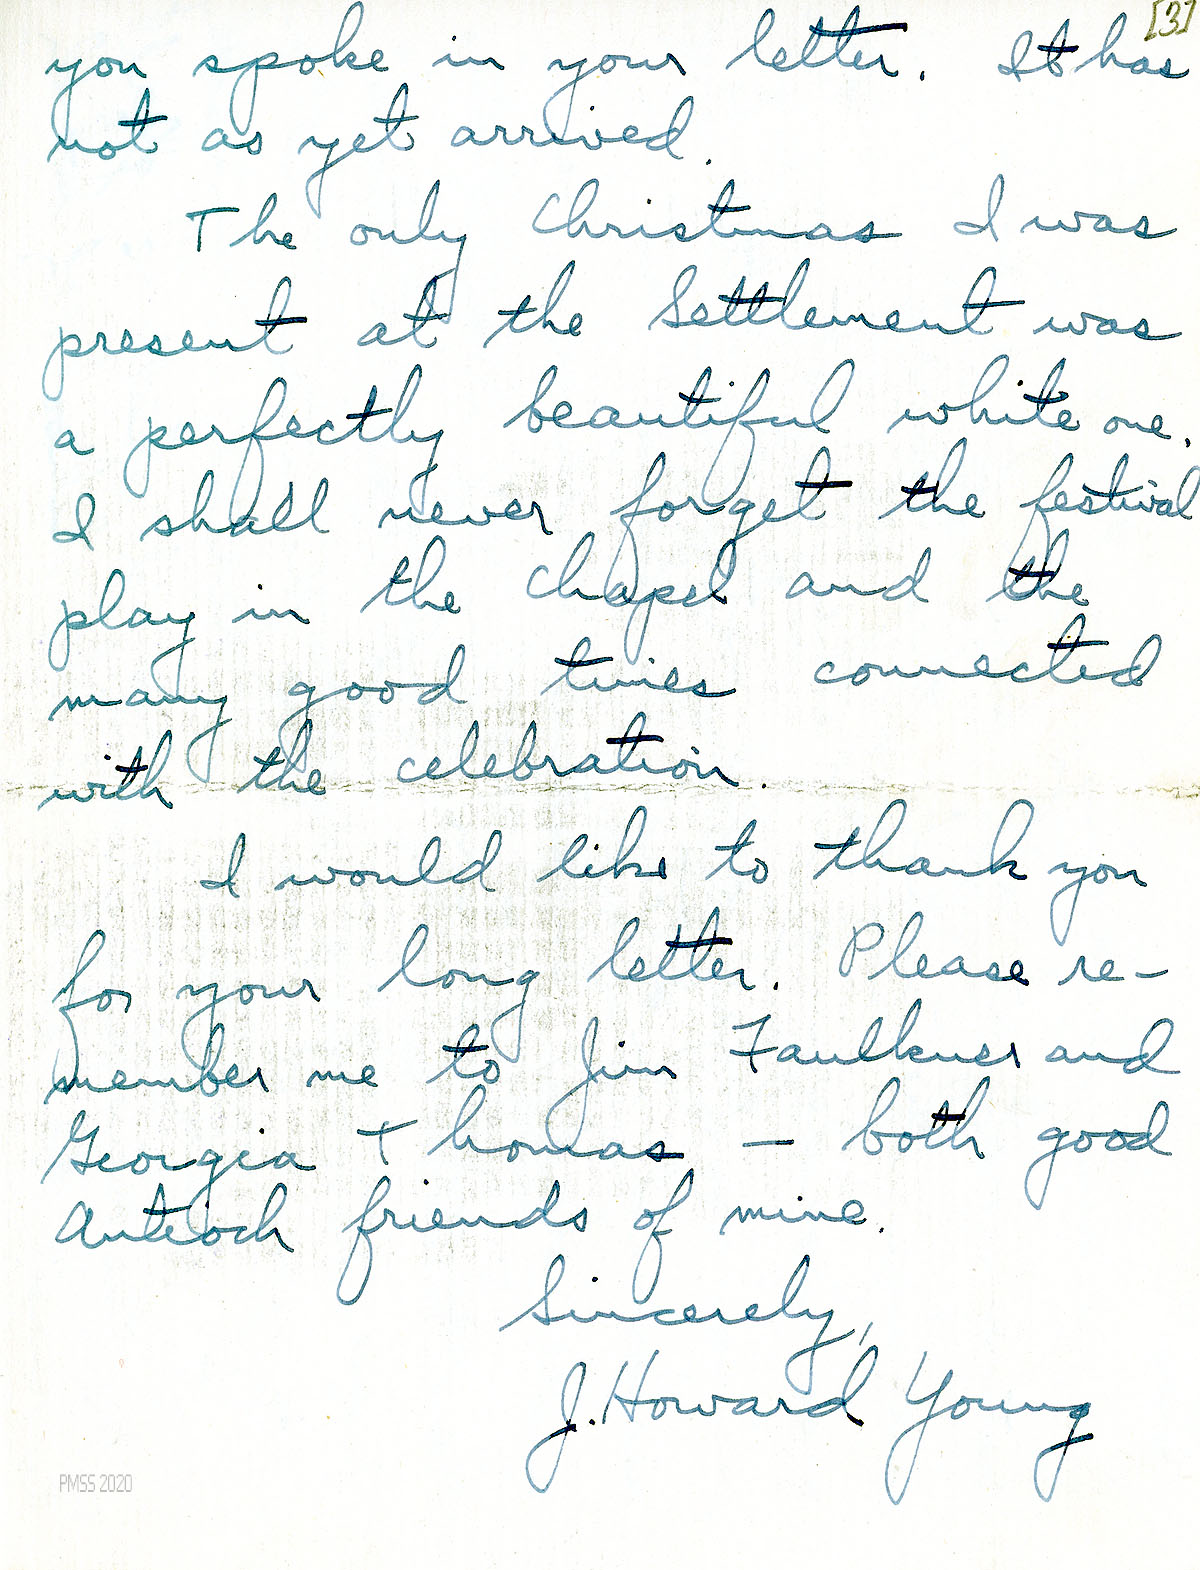 [3]
you spoke in your letter. It has
not as yet arrived.
The only Christmas I was
present at the Settlement was
a perfectly beautiful white one.
I shall never forget the festival
play in the Chapel and the
many good times connected
with the celebration.
I would like to thank you
for your long letter. Please re-
member me to Jim Faulkner and
Georgia Thomas — both good
Antioch friends of mine.
Sincerely,
J. Howard Young
PMSS 2020